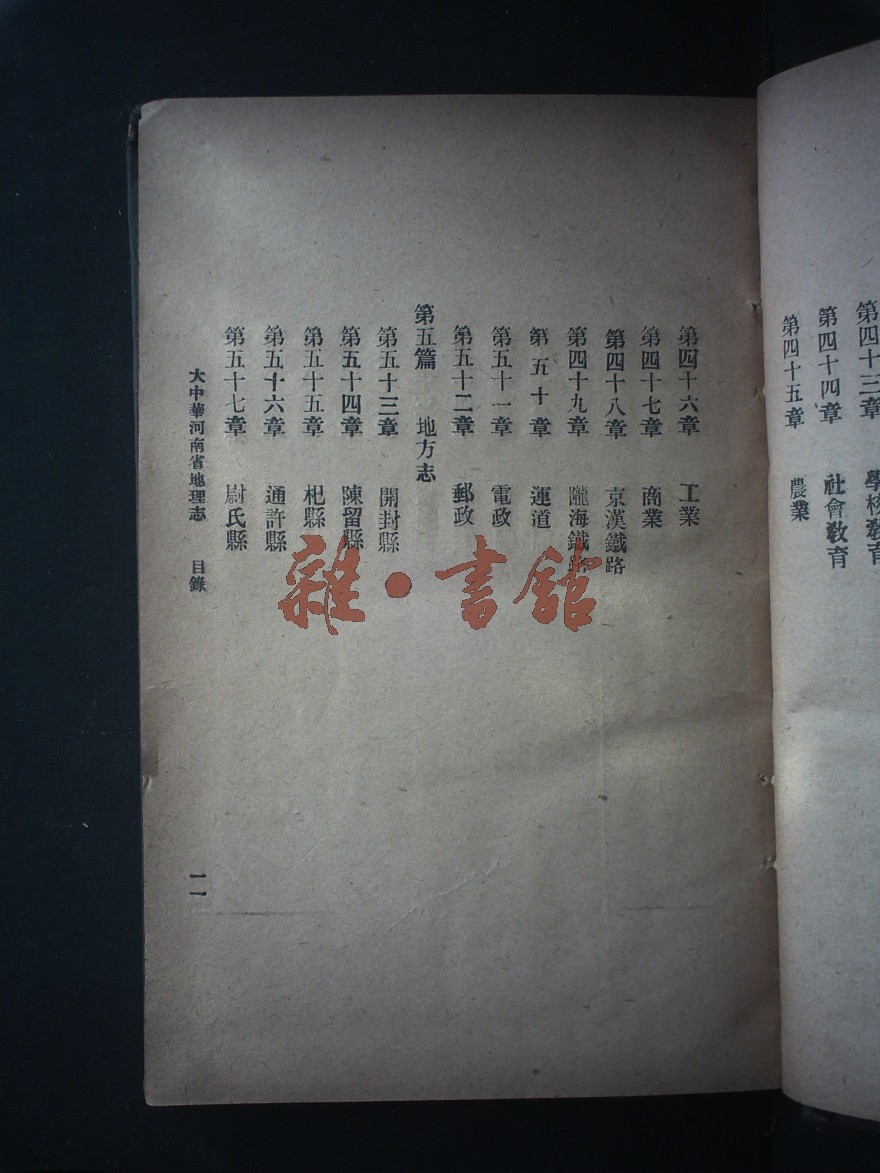 第四十三章 學校教育
第四十四章 社會敎育
第四十五章 農業
第四十六章 工業
第四十七章 商業
第四十八章 京漢鐵路
第四十九章 隴海鐵路
第五十章 運道
第五十一章 電政
第五十二章 郵政
第五篇 地方志
第五十三章 開封縣
第五十四章 陳留縣
第五十五章 杞縣
第五十六章 通許縣
第五十七章 尉氏縣
大中華河南省地理志 目錄
一一
雜·書館